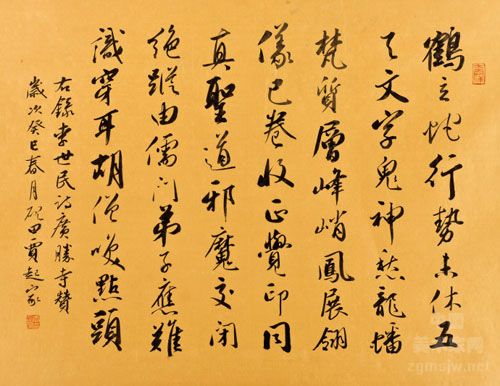 鶴立虵行勢未休五
天文字鬼神愁龍蟠
梵質層峰峭鳳展翎
儀已卷收正覺印同
真聖道邪魔交閉
絶蹤由儒門弟子應難
識穿耳胡僧咲點頭
右錄李世民詩廣勝寺贊
歲次癸巳春月硯田賈起家
zgmsjw.net